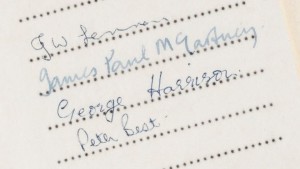 JW Lennon
James Paul McCartney
George Harrison.
Peter Best.